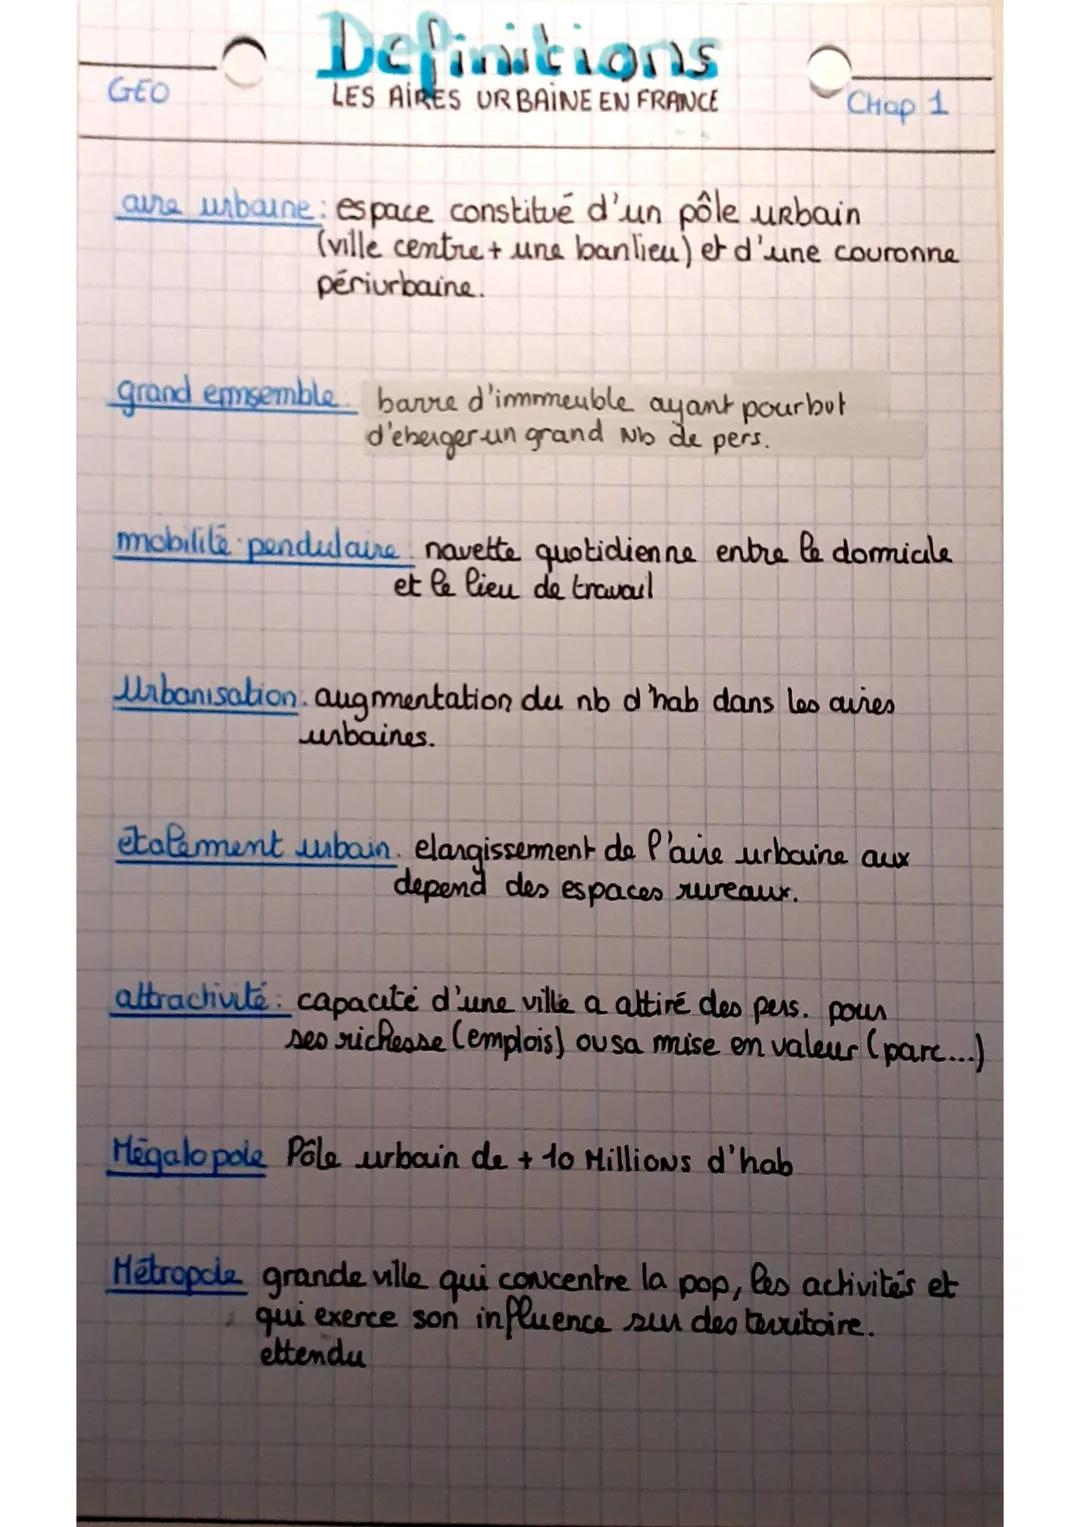 Definitions
GEO
LES AIRES URBAINE EN FRANCE
CHap 1
aire urbaine : espace constitué d'un pôle urbain
(ville centre + une banlieu) et d'une couronne
périurbaine.
grand emsemble barre d'immmeuble ayant pour but
d'eberger un grand Nb de pers.
mobilité pendulaire navette quotidienne entre le domicile
et le lieu de travail
Urbanisation. augmentation du nb d'hab dans les aires
urbaines.
étalement urbain. elargissement de l'aire urbaine aux
depend des espaces rureaux.
attractivité : capacité d'une ville a attiré des pers. pour
ses richesse (emplois) ou sa mise en valeur (parc...)
Mégalopole Pôle urbain de + 10 Millions d'hab
Métropole grande ville qui concentre la pop, les activités et
qui exerce son influence sur des territoire.
ettendu